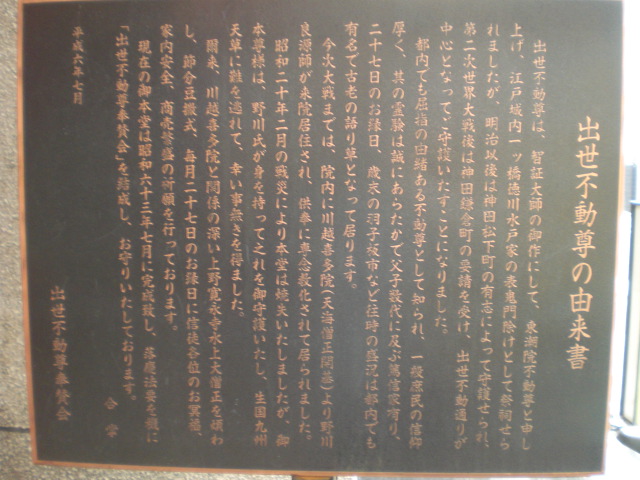 出世不動尊の由来書
出世不動尊は、智証大師の御作にして、東瀬院不動尊と申し
上げ、江戸城内一ッ橋徳川水戸家の表鬼門除けとして祭祠せら
れましたが、明治以後は神田松下町の有志によって守護せられ、
第二次世界大戦後は神田鎌倉町の要請を受け、出世不動通りが
中心となってご守護いたすことになりました。
都内でも屈指の由緒ある不動尊として知られ、一般庶民の信仰
厚く、其の霊験は誠にあらたかで父子数代に及ぶ篤信家有り、
二十七日のお縁日、歳末の羽子板市など往時の盛況は都内でも
有名で古老の語り草となって居ります。
今次大戦までは、院内に川越喜多院(天海僧正開基)より野川
良源師が来院居住され、供奉に専念教化されて居られました。
昭和二十年二月の戦災により本堂は焼失いたしましたが、御
本尊様は、野川氏が身を持って之れを御守護いたし、生国九州
天草に難を逃れて、幸い事無きを得ました。
爾来、川越喜多院と関係の深い上野寛永寺水上大僧正を煩わ
し、節分豆撒式、毎月二十七日のお縁日に信徒各位のお冥福、
家内安全、商売繁盛の祈願を行っております。
現在の御本堂は昭和六十三年七月に完成致し、落慶法要を機に
「出世不動尊奉賛会」を結成し、お守りいたしております。
合掌
平成六年七月
出世不動尊奉賛会